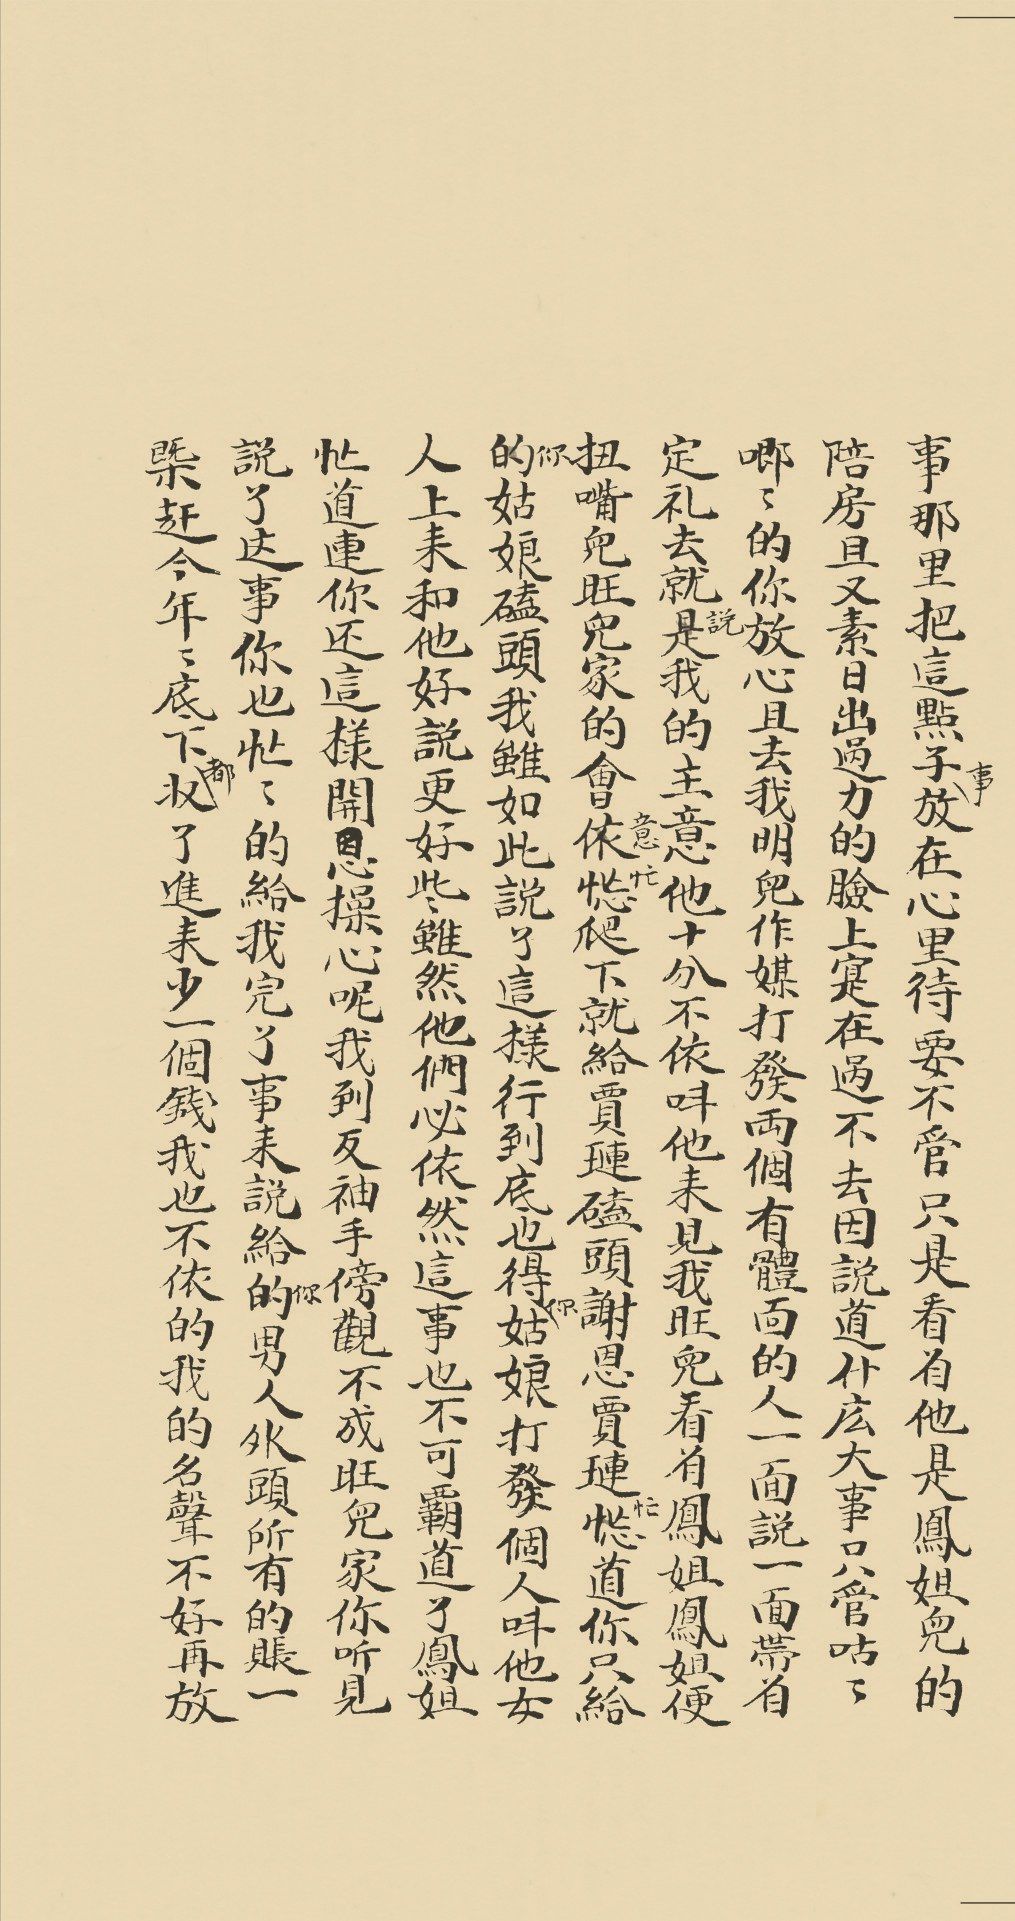 事那里把這點子事放在心里待要不管只是看着他是鳳姐兒的
陪房且又素日出過力的臉上寔在過不去因說道什庅大事只管咕〻
唧〻的你放心且去我明兒作媒打發両個有體面的人一面說一面帶着
定礼去就說是我的主意他十分不依呌他来見我旺兒看着鳳姐鳳姐便
扭嘴兒旺兒家的會意依忙怹爬下就給賈璉磕頭謝恩賈璉忙怹道你只給
你的姑娘磕頭我雖如此說了這樣行到底也得你姑娘打發個人呌他女
人上来和他好說更好些雖然他們必依然這事也不可覇道了鳳姐
忙道連你还這樣開恩操心呢我到反袖手傍觀不成旺兒家你听見
說了这事你也忙〻的給我完了事来說給你的男人外頭所有的賬一
槩赶今年〻底下都收了進来少一個錢我也不依的我的名聲不好再放